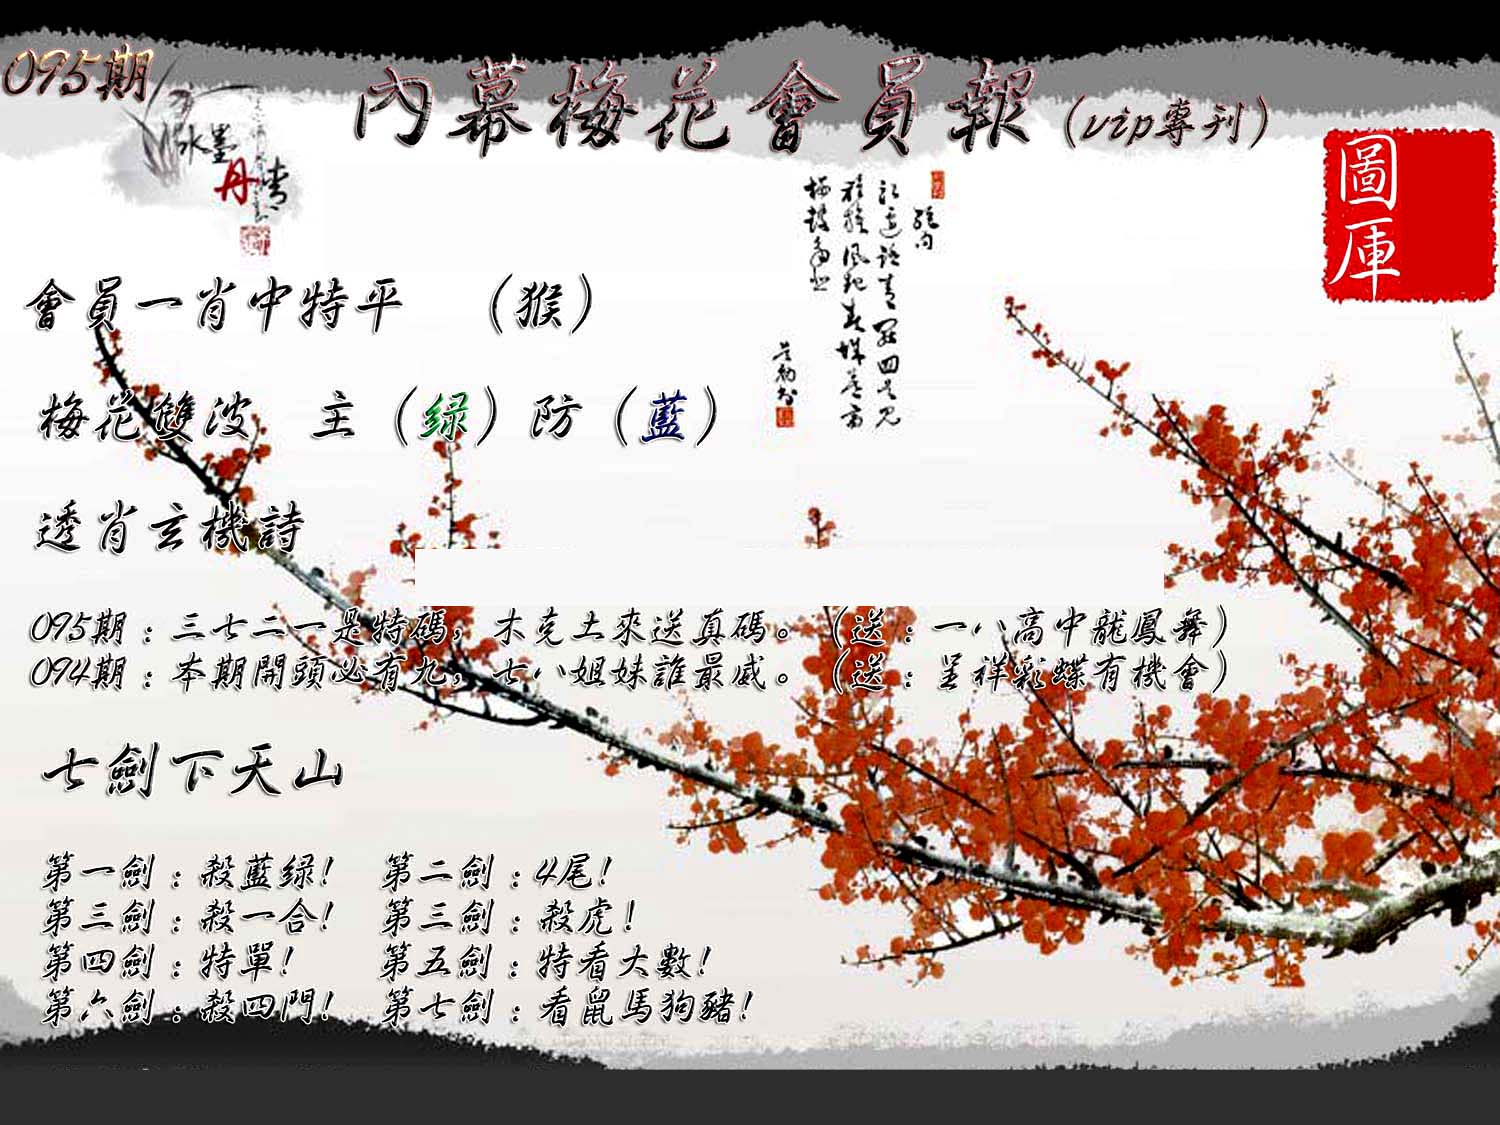 095期
內幕梅花會員報（vip專刊）
水墨
丹青
圖庫
會員一肖中特平 （猴）
梅花雙波 主（绿）防（藍）
透肖玄機詩
095期：三七二一是特碼，木克土來送真碼。（送：一八高中龍鳳舞）
094期：本期開頭必有九，七八姐妹誰最威。（送：呈祥彩蝶有機會）
七劍下天山
第一劍：殺藍绿！ 第二劍：4尾！
第三劍：殺一合！ 第三劍：殺虎！
第四劍：特單！ 第五劍：特看大數！
第六劍：殺四門！ 第七劍：看鼠馬狗豬！